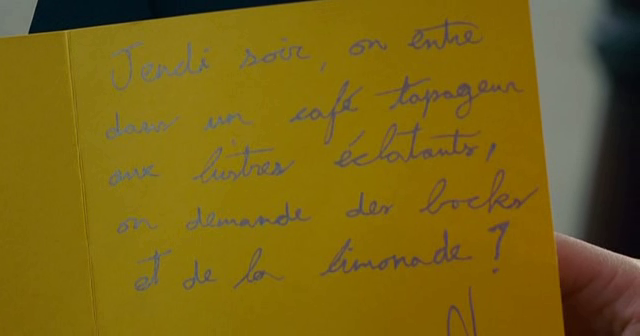 Jeudi soir, on entre
dans un café tapageur
aux lustres éclatants,
on demande des bocks
et de la limonade ?
N